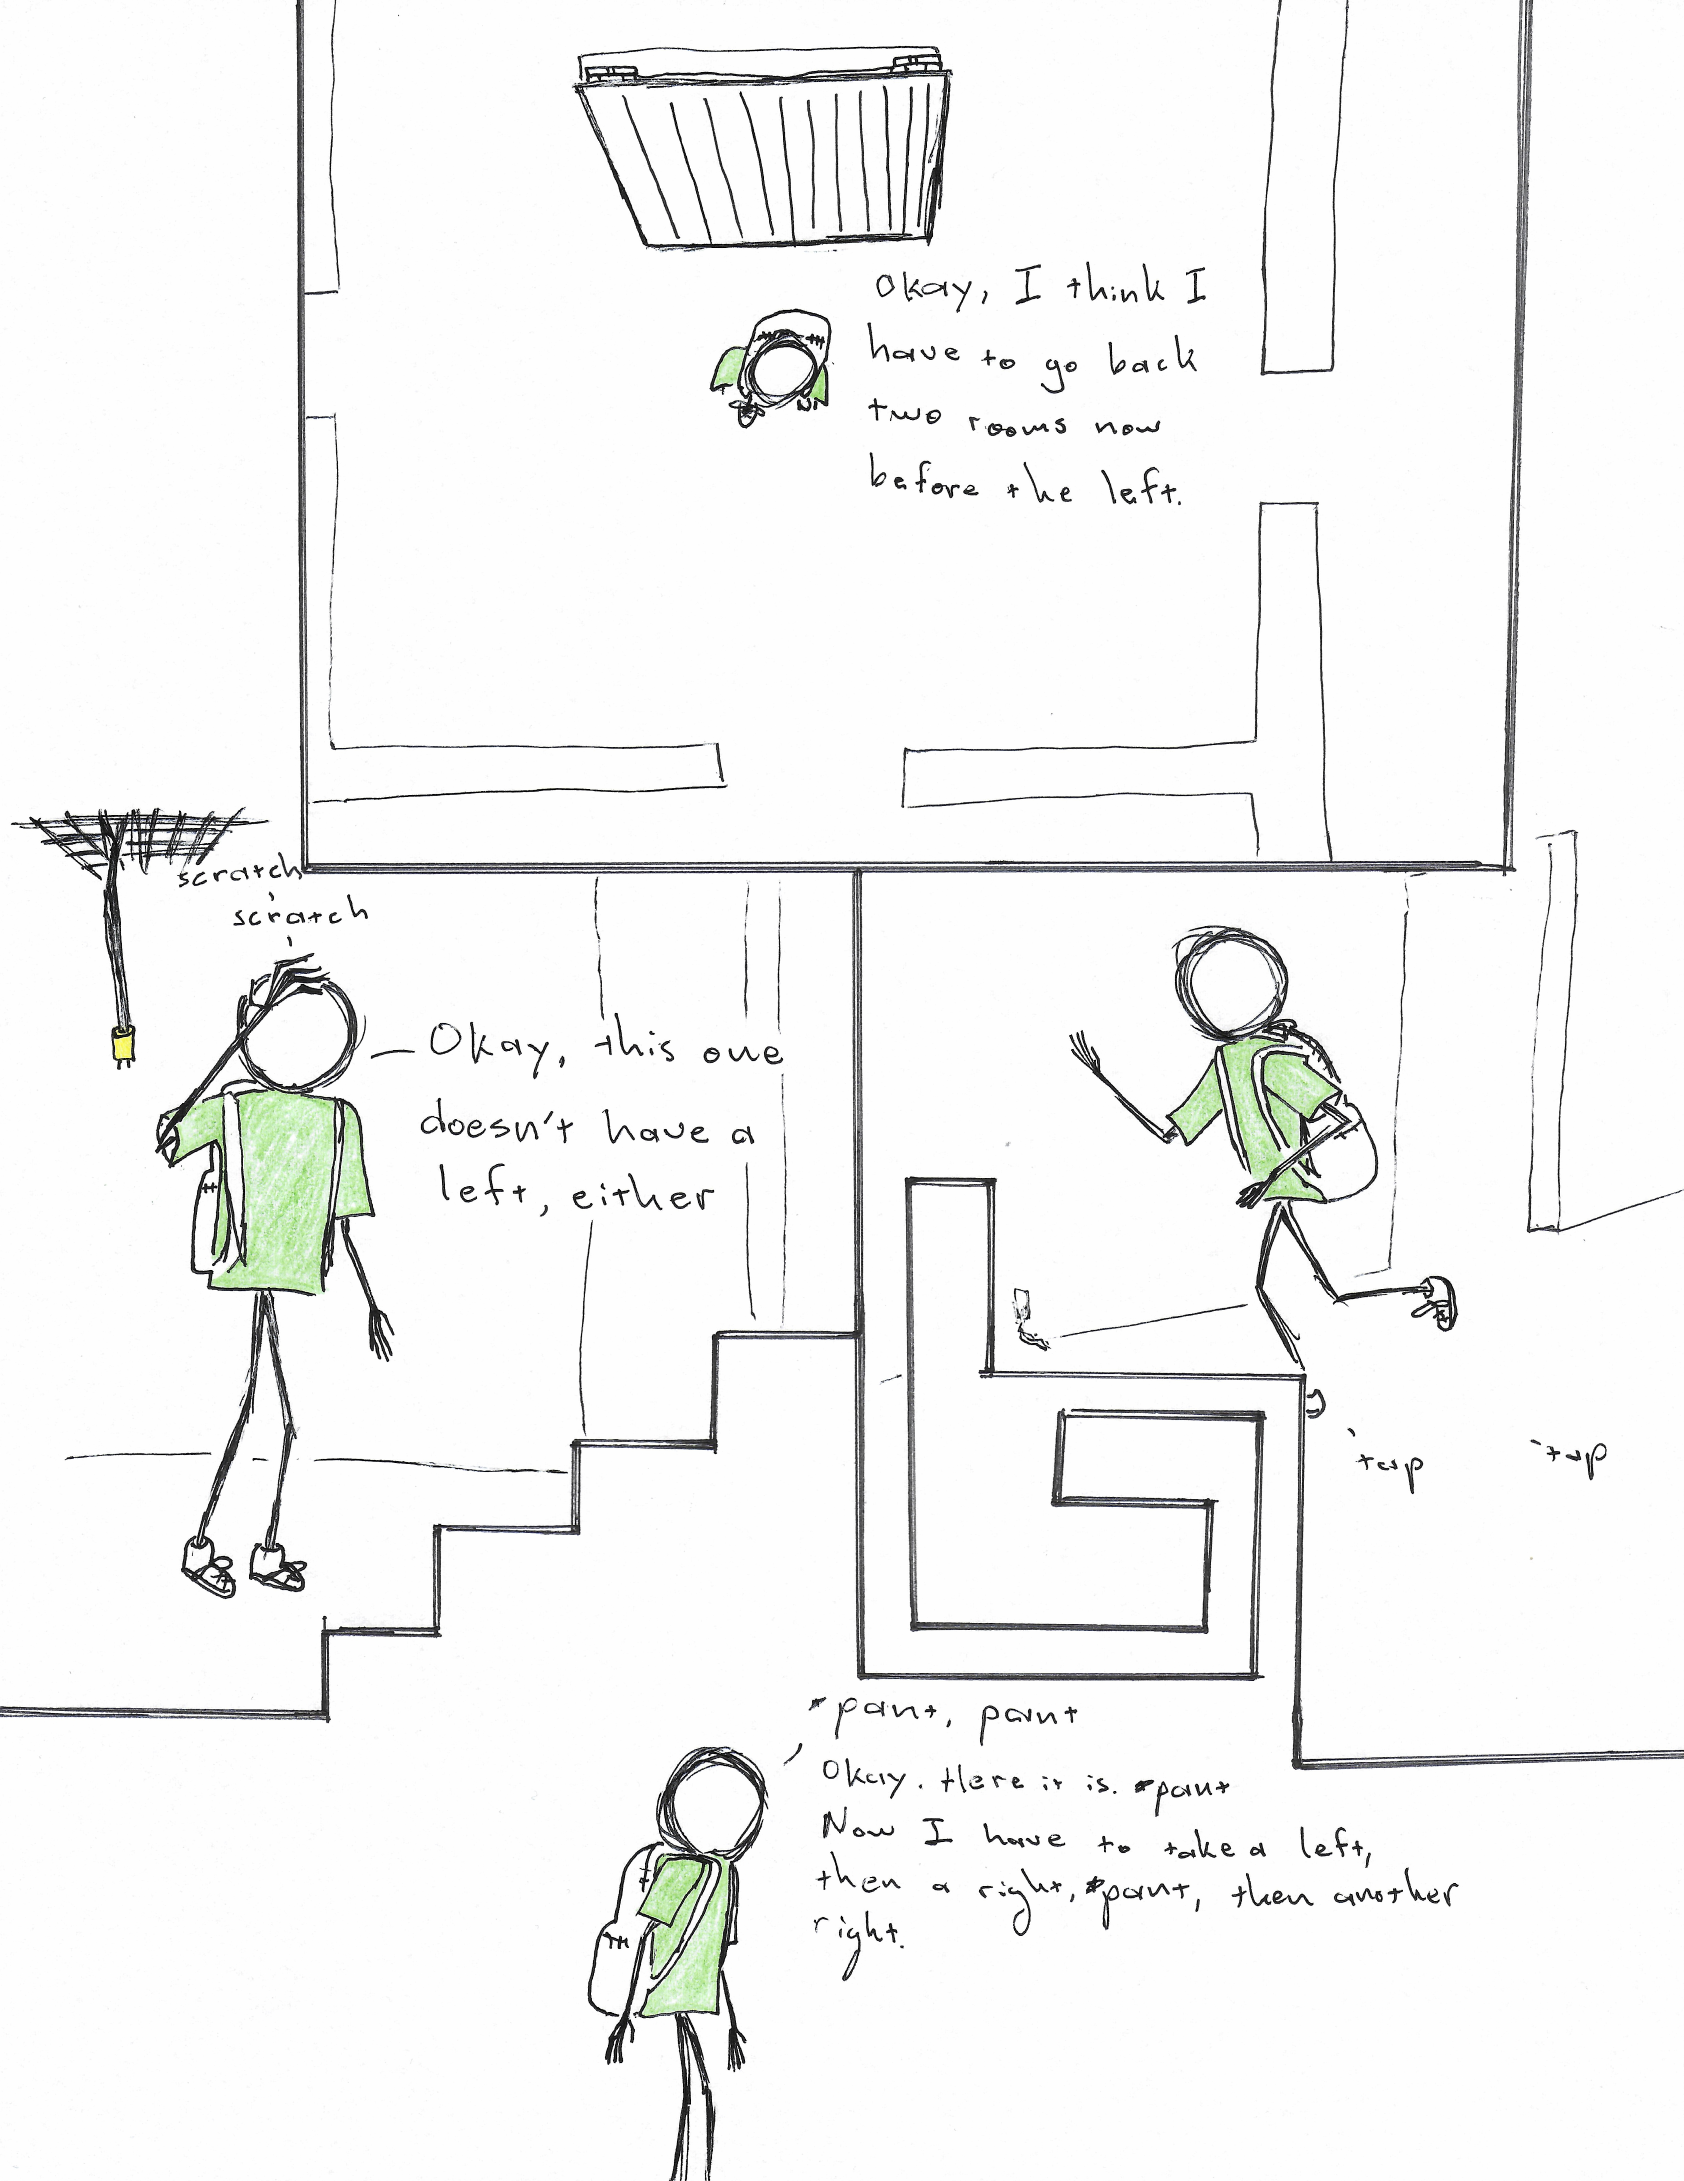 Okay, I think I
have to go back
two rooms now
before the left.
scratch
scratch
Okay, this one
doesn't have a
left, either
tap
tap
*pant, pant
Okay. Here it is. *pant
Now I have to take a left,
then a right, *pant, then another
right.